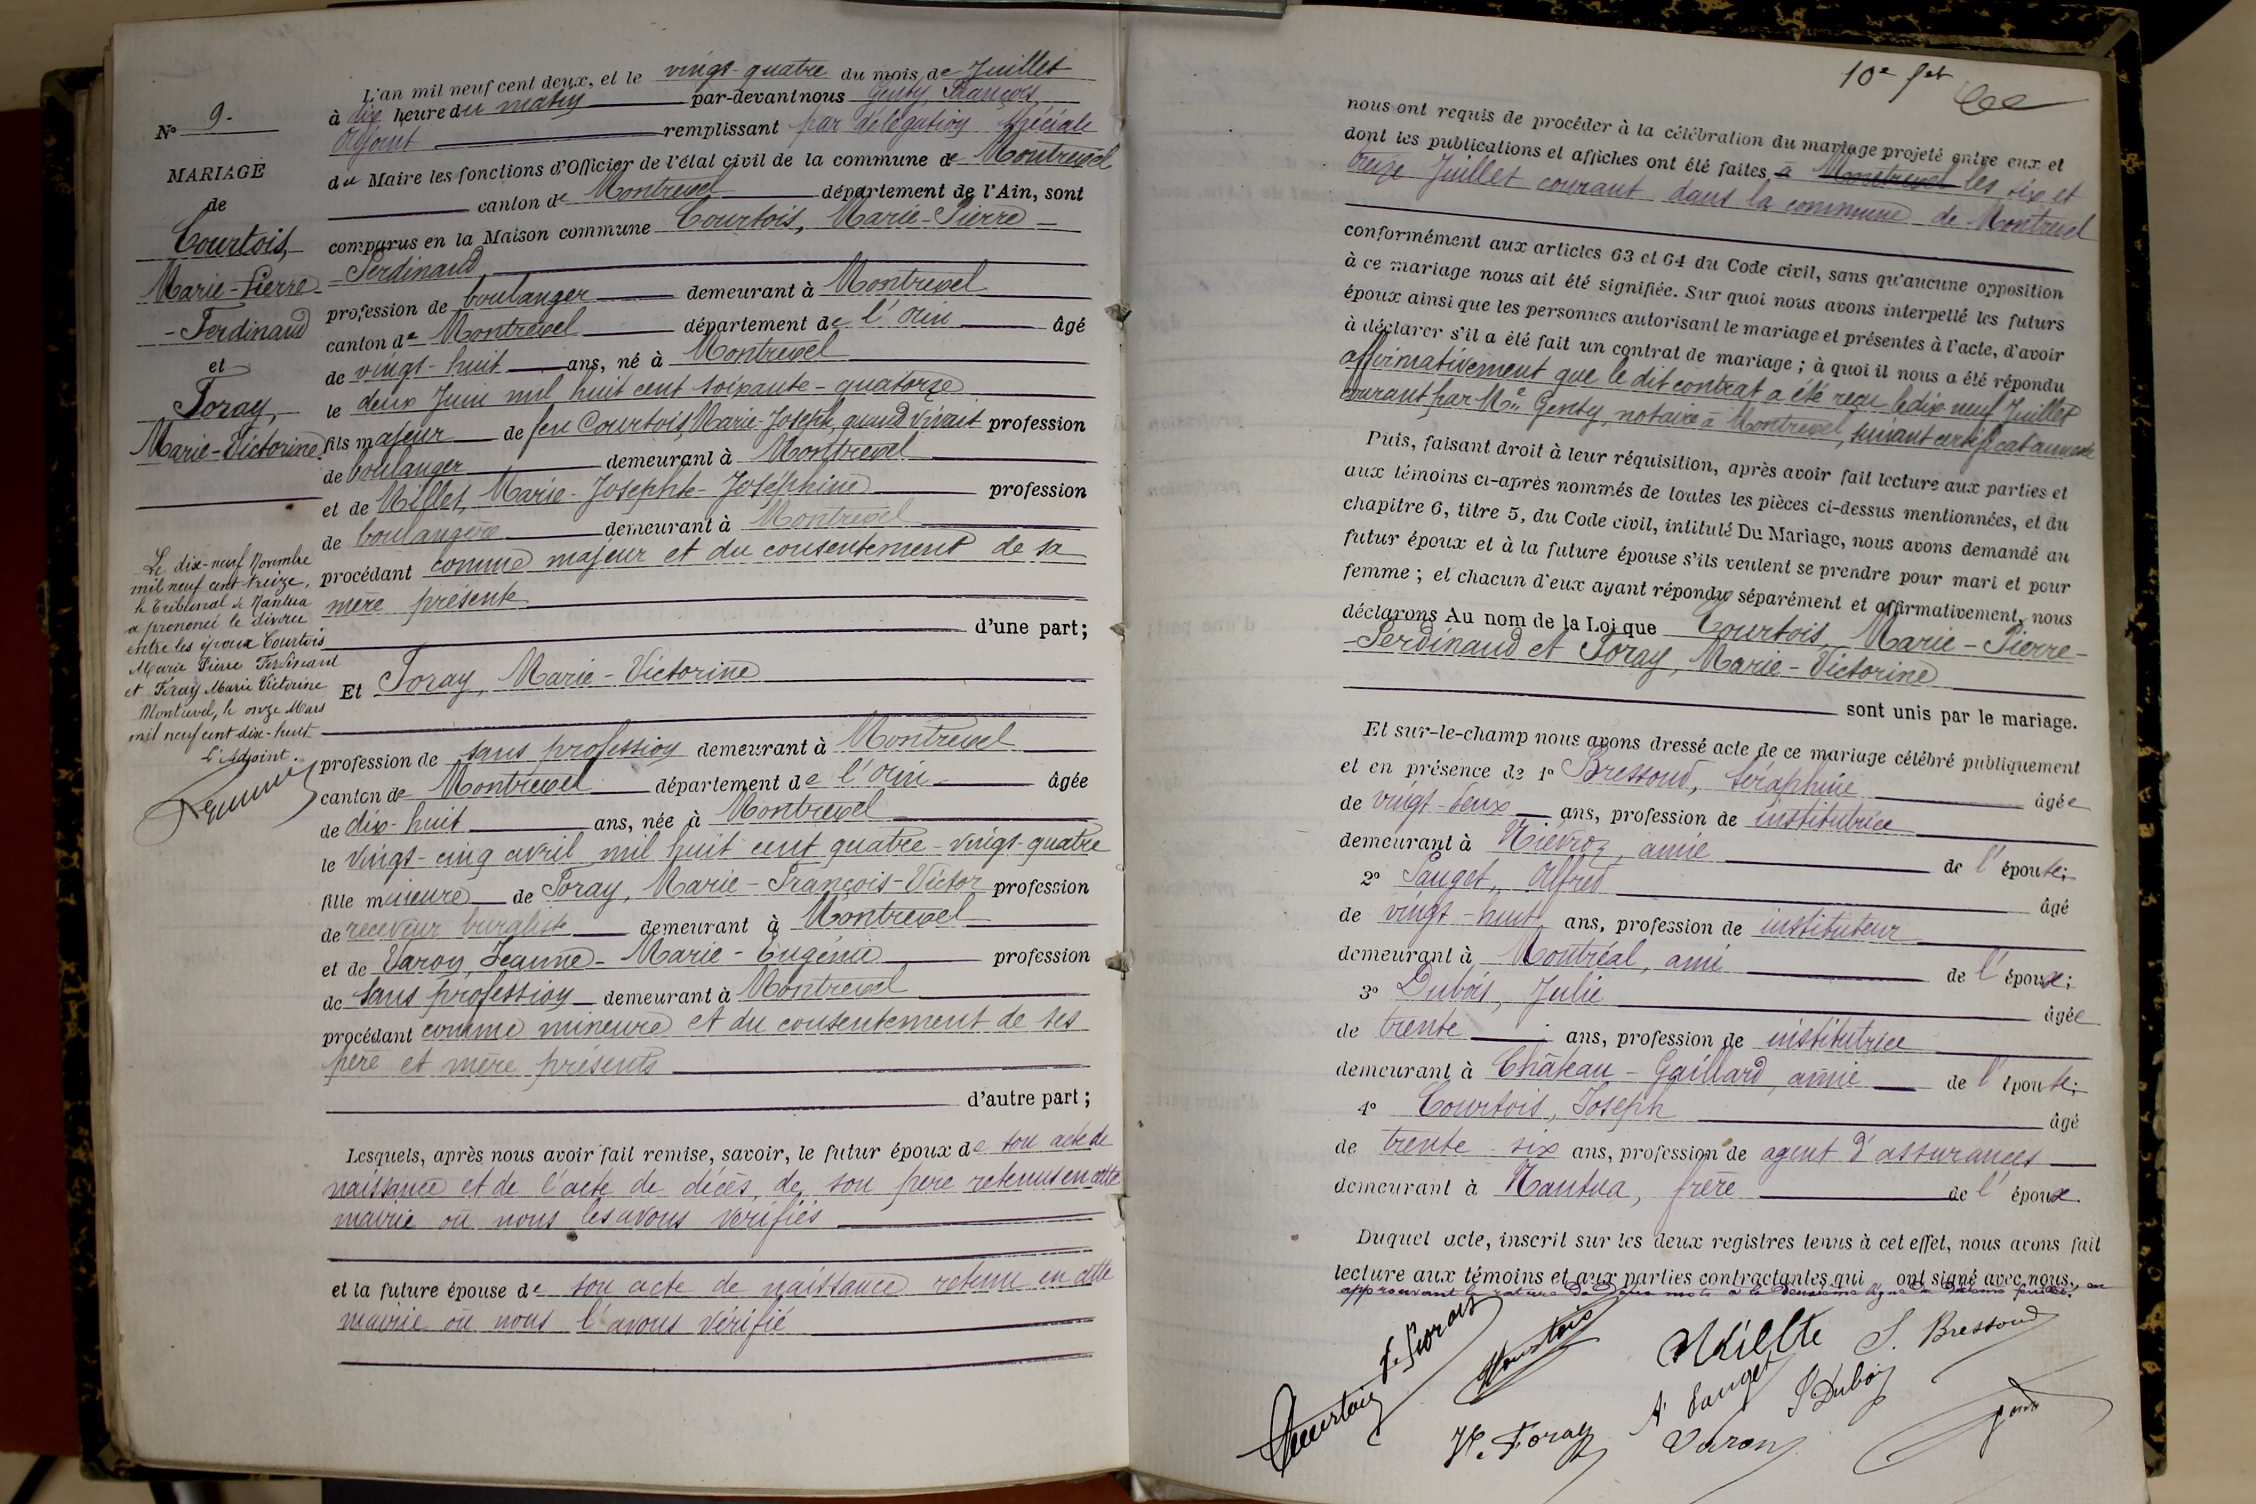 N° 9.
MARIAGE
de
Courtois,
Marie-Pierre-
-Ferdinand
et
Foray,
Marie-Victorine.
Le dix-neuf Novembre
mil neuf cent treize,
le Tribunal de Nantua
a prononcé le divorce
entre les époux Courtois
Marie Pierre Ferdinand
et Foray Marie Victorine
Montrevel, le onze Mars
mil neuf cent dix-huit
L'Adjoint.
L'an mil neuf cent deux, et le vingt-quatre du mois de Juillet
à dix heure du matin par-devant nous Genty, François
Adjoint remplissant par délégation spéciale
du Maire les fonctions d'Officier de l'état civil de la commune de Montrevel
canton de Montrevel département de l'Ain, sont
comparus en la Maison commune Courtois, Marie-Pierre-
-Ferdinand
profession de boulanger demeurant à Montrevel
canton de Montrevel département de l'Ain âgé
de vingt-huit ans, né à Montrevel
le deux Juin mil huit cent soixante-quatorze
fils majeur de feu Courtois, Marie-Joseph, quand vivait profession
de boulanger demeurant à Montrevel
et de Millet, Marie-Josephte-Joséphine profession
de boulangère demeurant à Montrevel
procédant comme majeur et du consentement de sa
mère présente
d'une part;
Et Foray, Marie-Victorine
profession de sans profession demeurant à Montrevel
canton de Montrevel département de l'Ain âgée
de dix-huit ans, née à Montrevel
le vingt-cinq avril mil huit cent quatre-vingt-quatre
fille mineure de Foray, Marie-François-Victor profession
de receveur buraliste demeurant à Montrevel
et de Varon, Jeanne-Marie-Eugénie profession
de sans profession demeurant à Montrevel
procédant comme mineure et du consentement de ses
père et mère présents
d'autre part;
Lesquels, après nous avoir fait remise, savoir, le futur époux de son acte de
naissance et de l'acte de décès de son père retenus en cette
mairie où nous les avons vérifiés
et la future épouse de son acte de naissance retenu en cette
mairie où nous l'avons vérifié
10e fet
nous ont requis de procéder à la célébration du mariage projeté entre eux et
dont les publications et affiches ont été faites à Montrevel les six et
treize Juillet courant dans la commune de Montrevel
conformément aux articles 63 et 64 du Code civil, sans qu'aucune opposition
à ce mariage nous ait été signifiée. Sur quoi nous avons interpellé les futurs
époux ainsi que les personnes autorisant le mariage et présentes à l'acte, d'avoir
à déclarer s'il a été fait un contrat de mariage ; à quoi il nous a été répondu
affirmativement que le dit contrat a été reçu le dix neuf Juillet
courant par Me Genty, notaire à Montrevel, suivant certificat annexé
Puis, faisant droit à leur réquisition, après avoir fait lecture aux parties et
aux témoins ci-après nommés de toutes les pièces ci-dessus mentionnées, et du
chapitre 6, titre 5, du Code civil, intitulé Du Mariage, nous avons demandé au
futur époux et à la future épouse s'ils veulent se prendre pour mari et pour
femme ; et chacun d'eux ayant répondu séparément et affirmativement, nous
déclarons Au nom de la Loi que Courtois, Marie-Pierre-
-Ferdinand et Foray, Marie-Victorine
sont unis par le mariage.
Et sur-le-champ nous avons dressé acte de ce mariage célébré publiquement
et en présence de 1° Bressoud, Séraphine âgée
de vingt-deux ans, profession de institutrice
demeurant à Niévroz, amie de l'épouse;
2° Pauget, Alfred âgé
de vingt-huit ans, profession de instituteur
demeurant à Montréal, ami de l'époux;
3° Dubois, Julie âgée
de trente ans, profession de institutrice
demeurant à Château-Gaillard, amie de l'épouse;
4° Courtois, Joseph âgé
de trente-six ans, profession de agent d'assurances
demeurant à Nantua, frère de l'époux.
Duquel acte, inscrit sur les deux registres tenus à cet effet, nous avons fait
lecture aux témoins et aux parties contractantes qui ont signé avec nous, en
approuvant la rature de deux mots à la deuxième ligne du dixième feuillet.
V. Foray
Courtois
Millet
S. Bressoud
Courtois
Vr. Foray
A. Pauget
Varon
J. Dubois
Genty